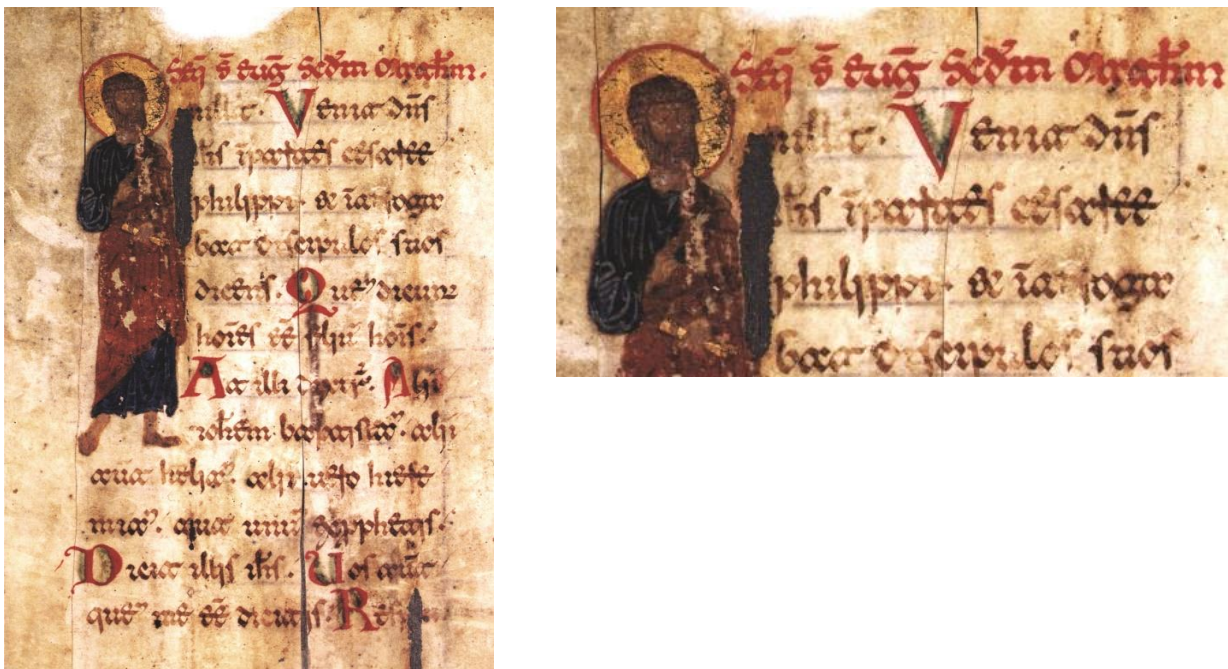 Seq̄ s̄ eug̅ Secd̄m Matth̄m.
illo t. Venit dn̄s
ih̄s ī partes cesaree
philippi. et īt rogax
bat discipulos suos
dicens. Que dicunt
hoīes eē filiū hoīs.
At illi dixer̄. Alii
ioh̄em baptista. alii
autē helia. alii vero hiere
mia. aut unū ex pphetis.
Dicit illis ih̄s. Uos autē
que me eē dicitis. Resp
Seq̄ s̄ eug̅ Secd̄m Matth̄m
illo t. Venit dn̄s
ih̄s ī partes cesaree
philippi. et īt rogax
bat discipulos suos